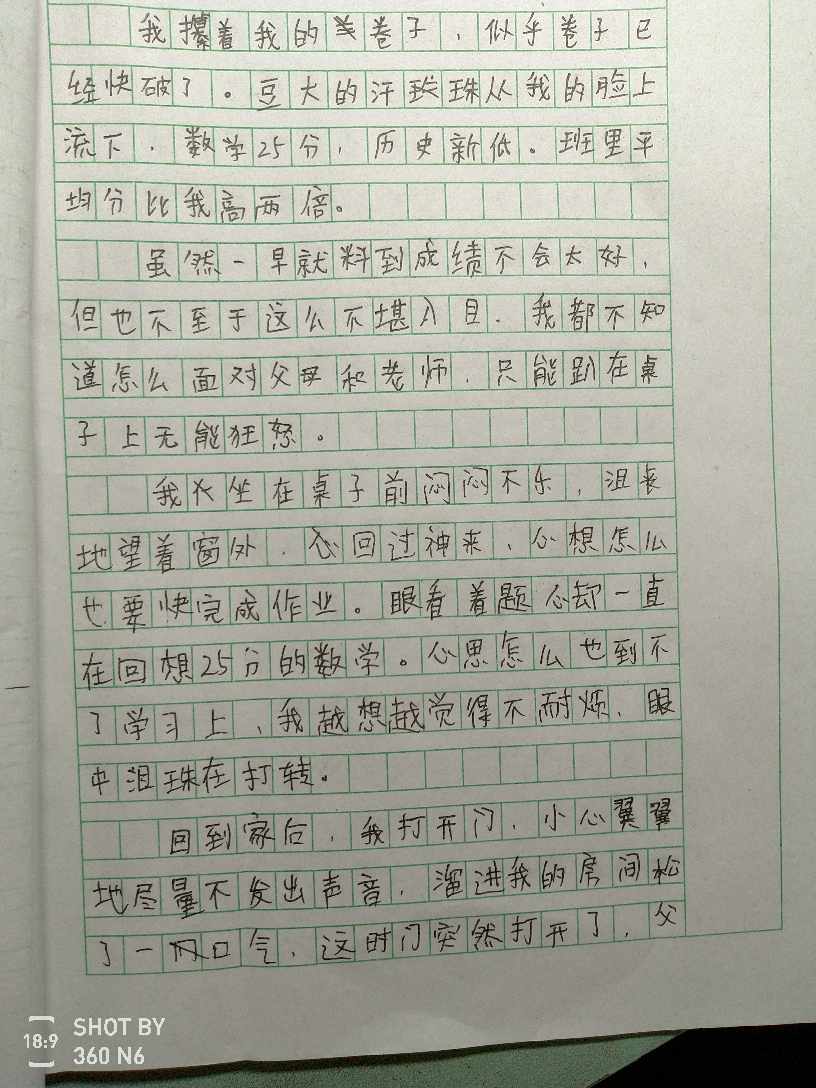 我攥着我的卷子，似乎卷子已
经快破了。豆大的汗珠从我的脸上
流下，数学25分，历史新低。班里平
均分比我高两倍。
虽然一早就料到成绩不会太好，
但也不至于这么不堪入目，我都不知
道怎么面对父母和老师，只能趴在桌
子上无能狂怒。
我坐在桌子前闷闷不乐，沮丧
地望着窗外，回过神来，心想怎么
也要快完成作业。眼看着题心却一直
在回想25分的数学。心思怎么也到不
了学习上，我越想越觉得不耐烦，眼
中泪珠在打转。
回到家后，我打开门，小心翼翼
地尽量不发出声音，溜进我的房间松
了一口气，这时门突然打开了，父
18:9 SHOT BY
360 N6